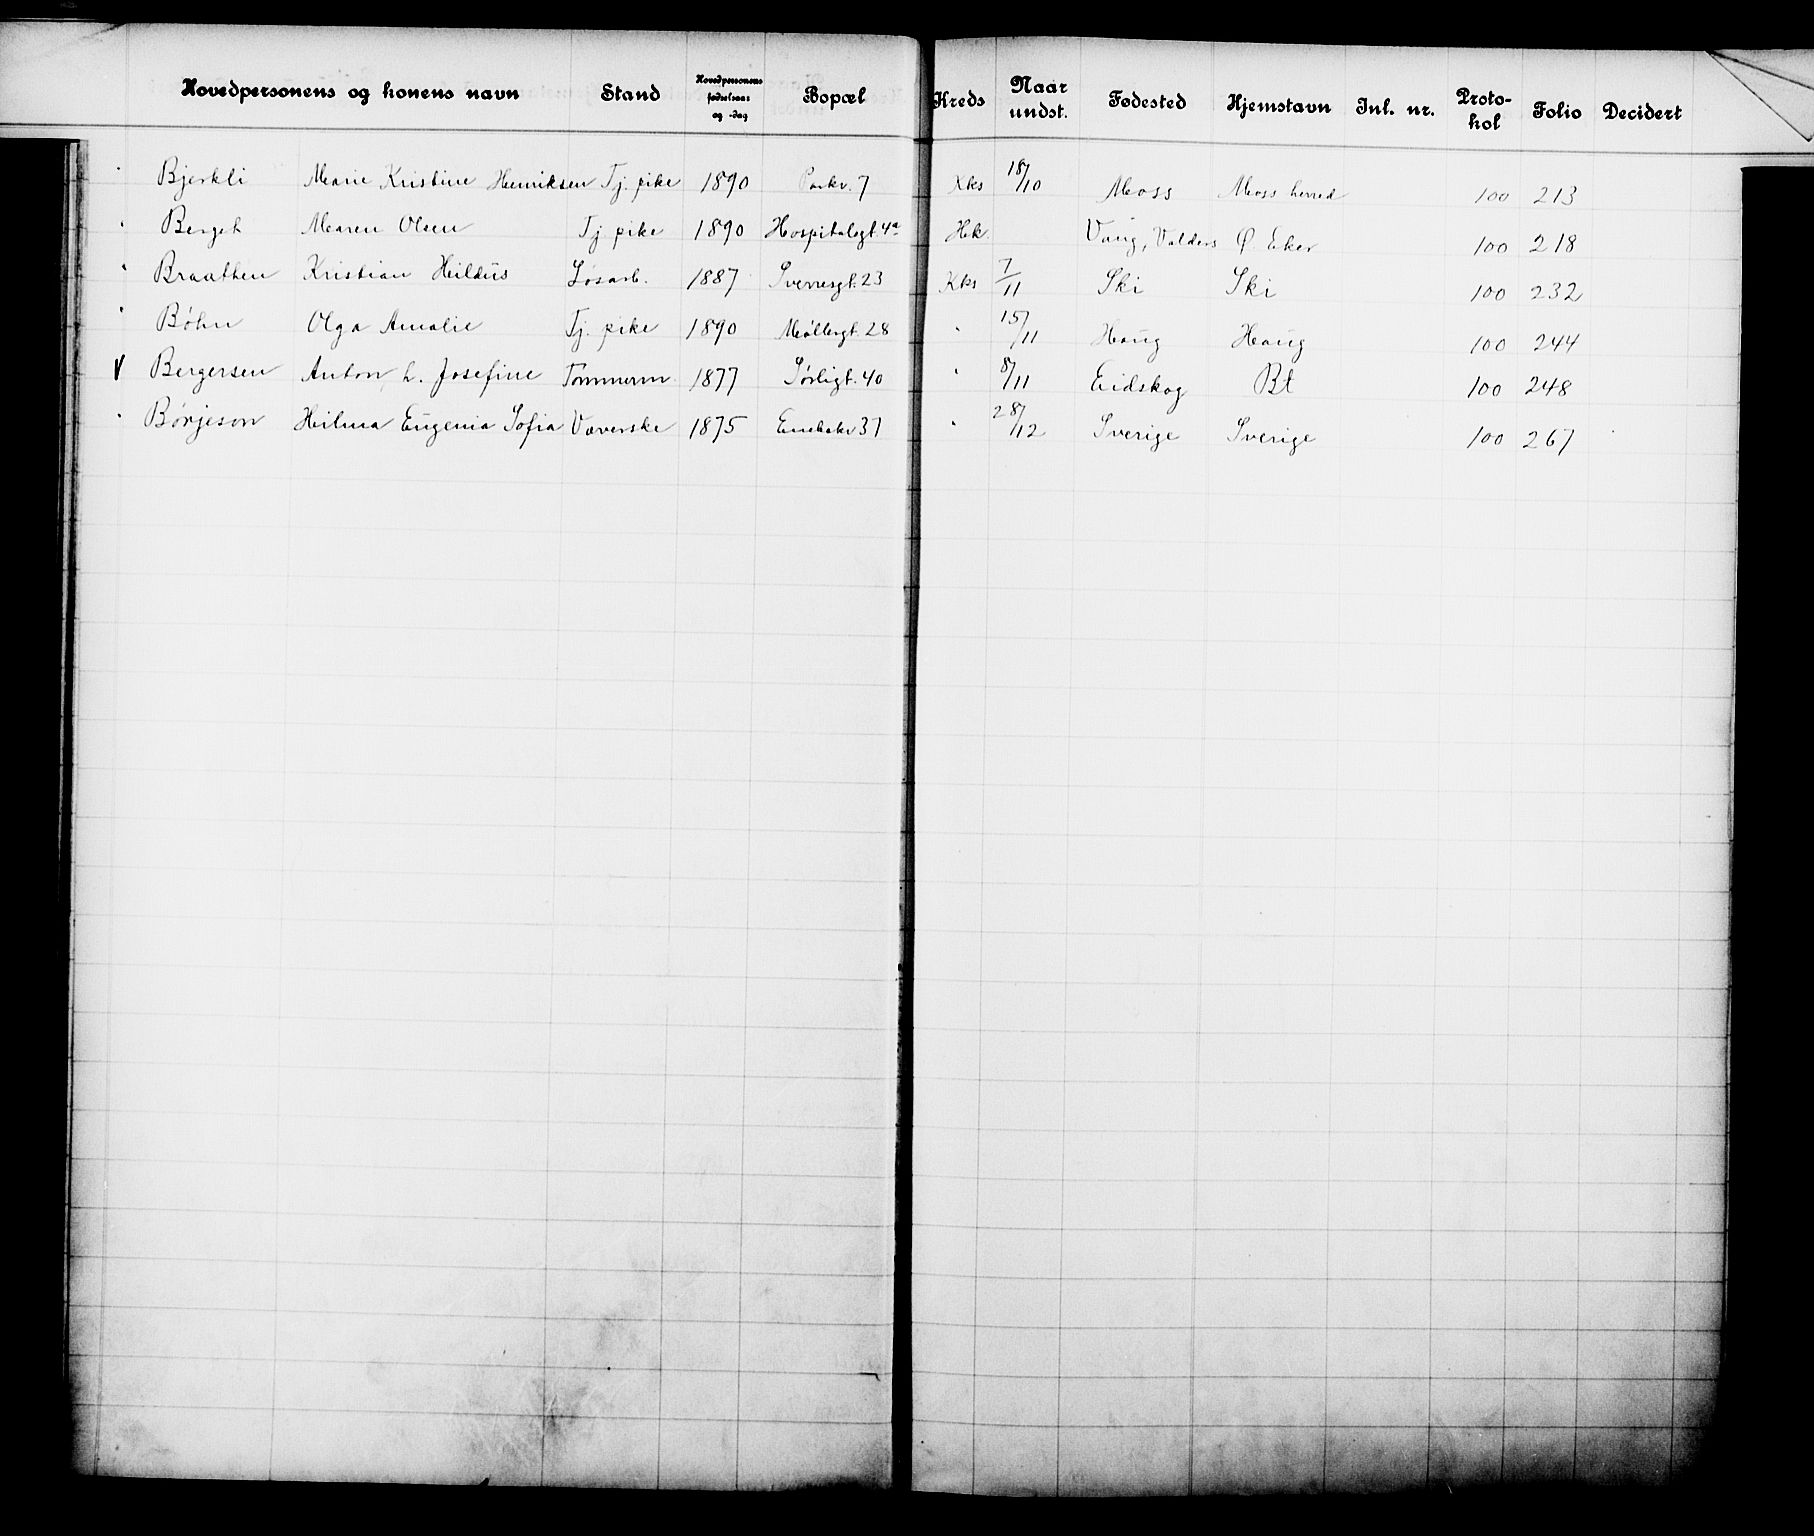 Hovedpersonens og konens navn Stand Hovedpersonens fødselsaar og -dag Bopæl Kreds Naar undst. Fødested Hjemstavn Inl. nr. Protokol Folio Decidert
Bjerkli Marie Kristine Henriksen Tj. pike 1890 Parkv. 7 Kks 18/10 Moss Moss herred 100 213
Berget Maren Olsen Tj. pike 1890 Hospitalsgt. 4a Hk. Vang, Valders Ø. Eker 100 218
Braathen Kristian Hildus Løsarb. 1887 Sverresgt. 23 Kks 7/11 Ski Ski 100 232
Bøhn Olga Amalie Tj. pike 1890 Møllergt. 28 " 15/11 Haug Haug 100 244
V Bergersen Anton h. Josefine Tømmerm. 1877 Sørligt. 40 " 8/11 Eidskog Bt 100 248
Børjeson Hilma Eugenia Sofia Væverske 1875 Enebakv 37 " 28/12 Sverige Sverige 100 267